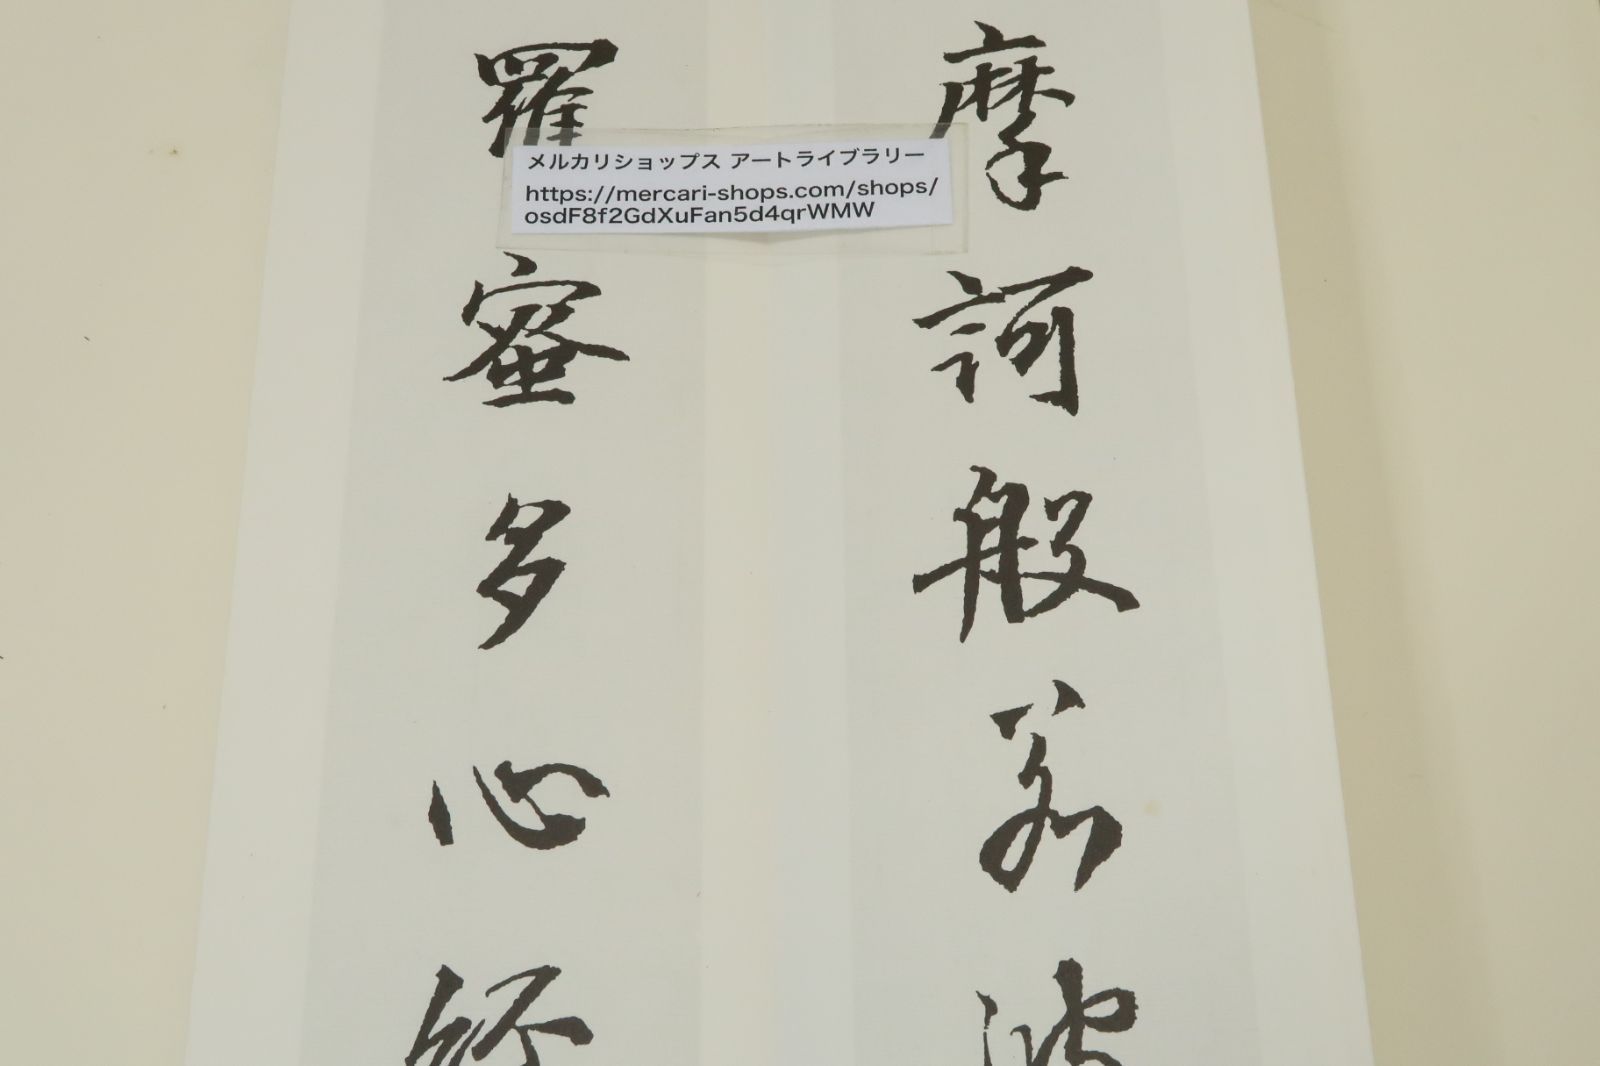 摩訶般若波
羅蜜多心経
メルカリショップス アートライブラリー
https://mercari-shops.com/shops/
osdF8f2GdXuFan5d4qrWMW